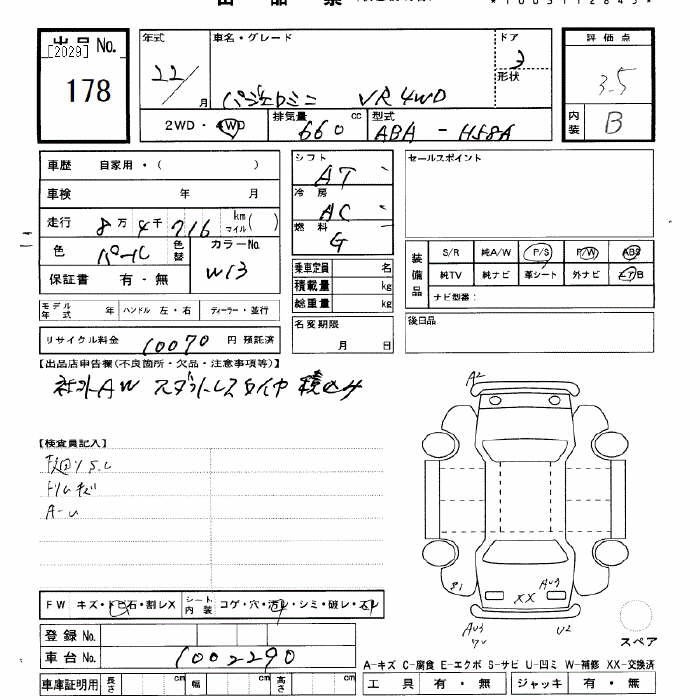 [2029]
出品No.
178
年式
22/
月
車名・グレード
パジェロミニ VR 4WD
ドア
3
形状
評価点
3.5
内装
B
2WD・4WD
排気量
660
cc
型式
ABA-H58A
車歴 自家用・( )
車検 年 月
走行 8万4千716 km マイル( )
色 パール
色替
カラーNo.
W13
保証書 有・無
モデル年式 年
ハンドル 左・右
ディーラー・並行
リサイクル料金 10070 円 預託済
シフト
AT
冷房
AC
燃料
G
乗車定員 名
積載量 kg
総重量 kg
名変期限
月 日
セールスポイント
装備品
S/R 純A/W P/S P/W ABS
純TV 純ナビ 革シート 外ナビ エアB
ナビ型番:
後日品
【出品店申告欄(不良箇所・欠品・注意事項等)】
社外AW スタットレスタイヤ 積込み
【検査員記入】
トリムキズ
A-U
FW キズ・トビ石・割レX
シート内装 コゲ・穴・汚レ・シミ・破レ・スレ
登録No.
車台No. 1002290
車庫証明用 長さ cm 幅 cm 高さ cm
A2
XX
U2
スペア
A-キズ C-腐食 E-エクボ S-サビ U-凹ミ W-補修 XX-交換済
工具 有・無 ジャッキ 有・無